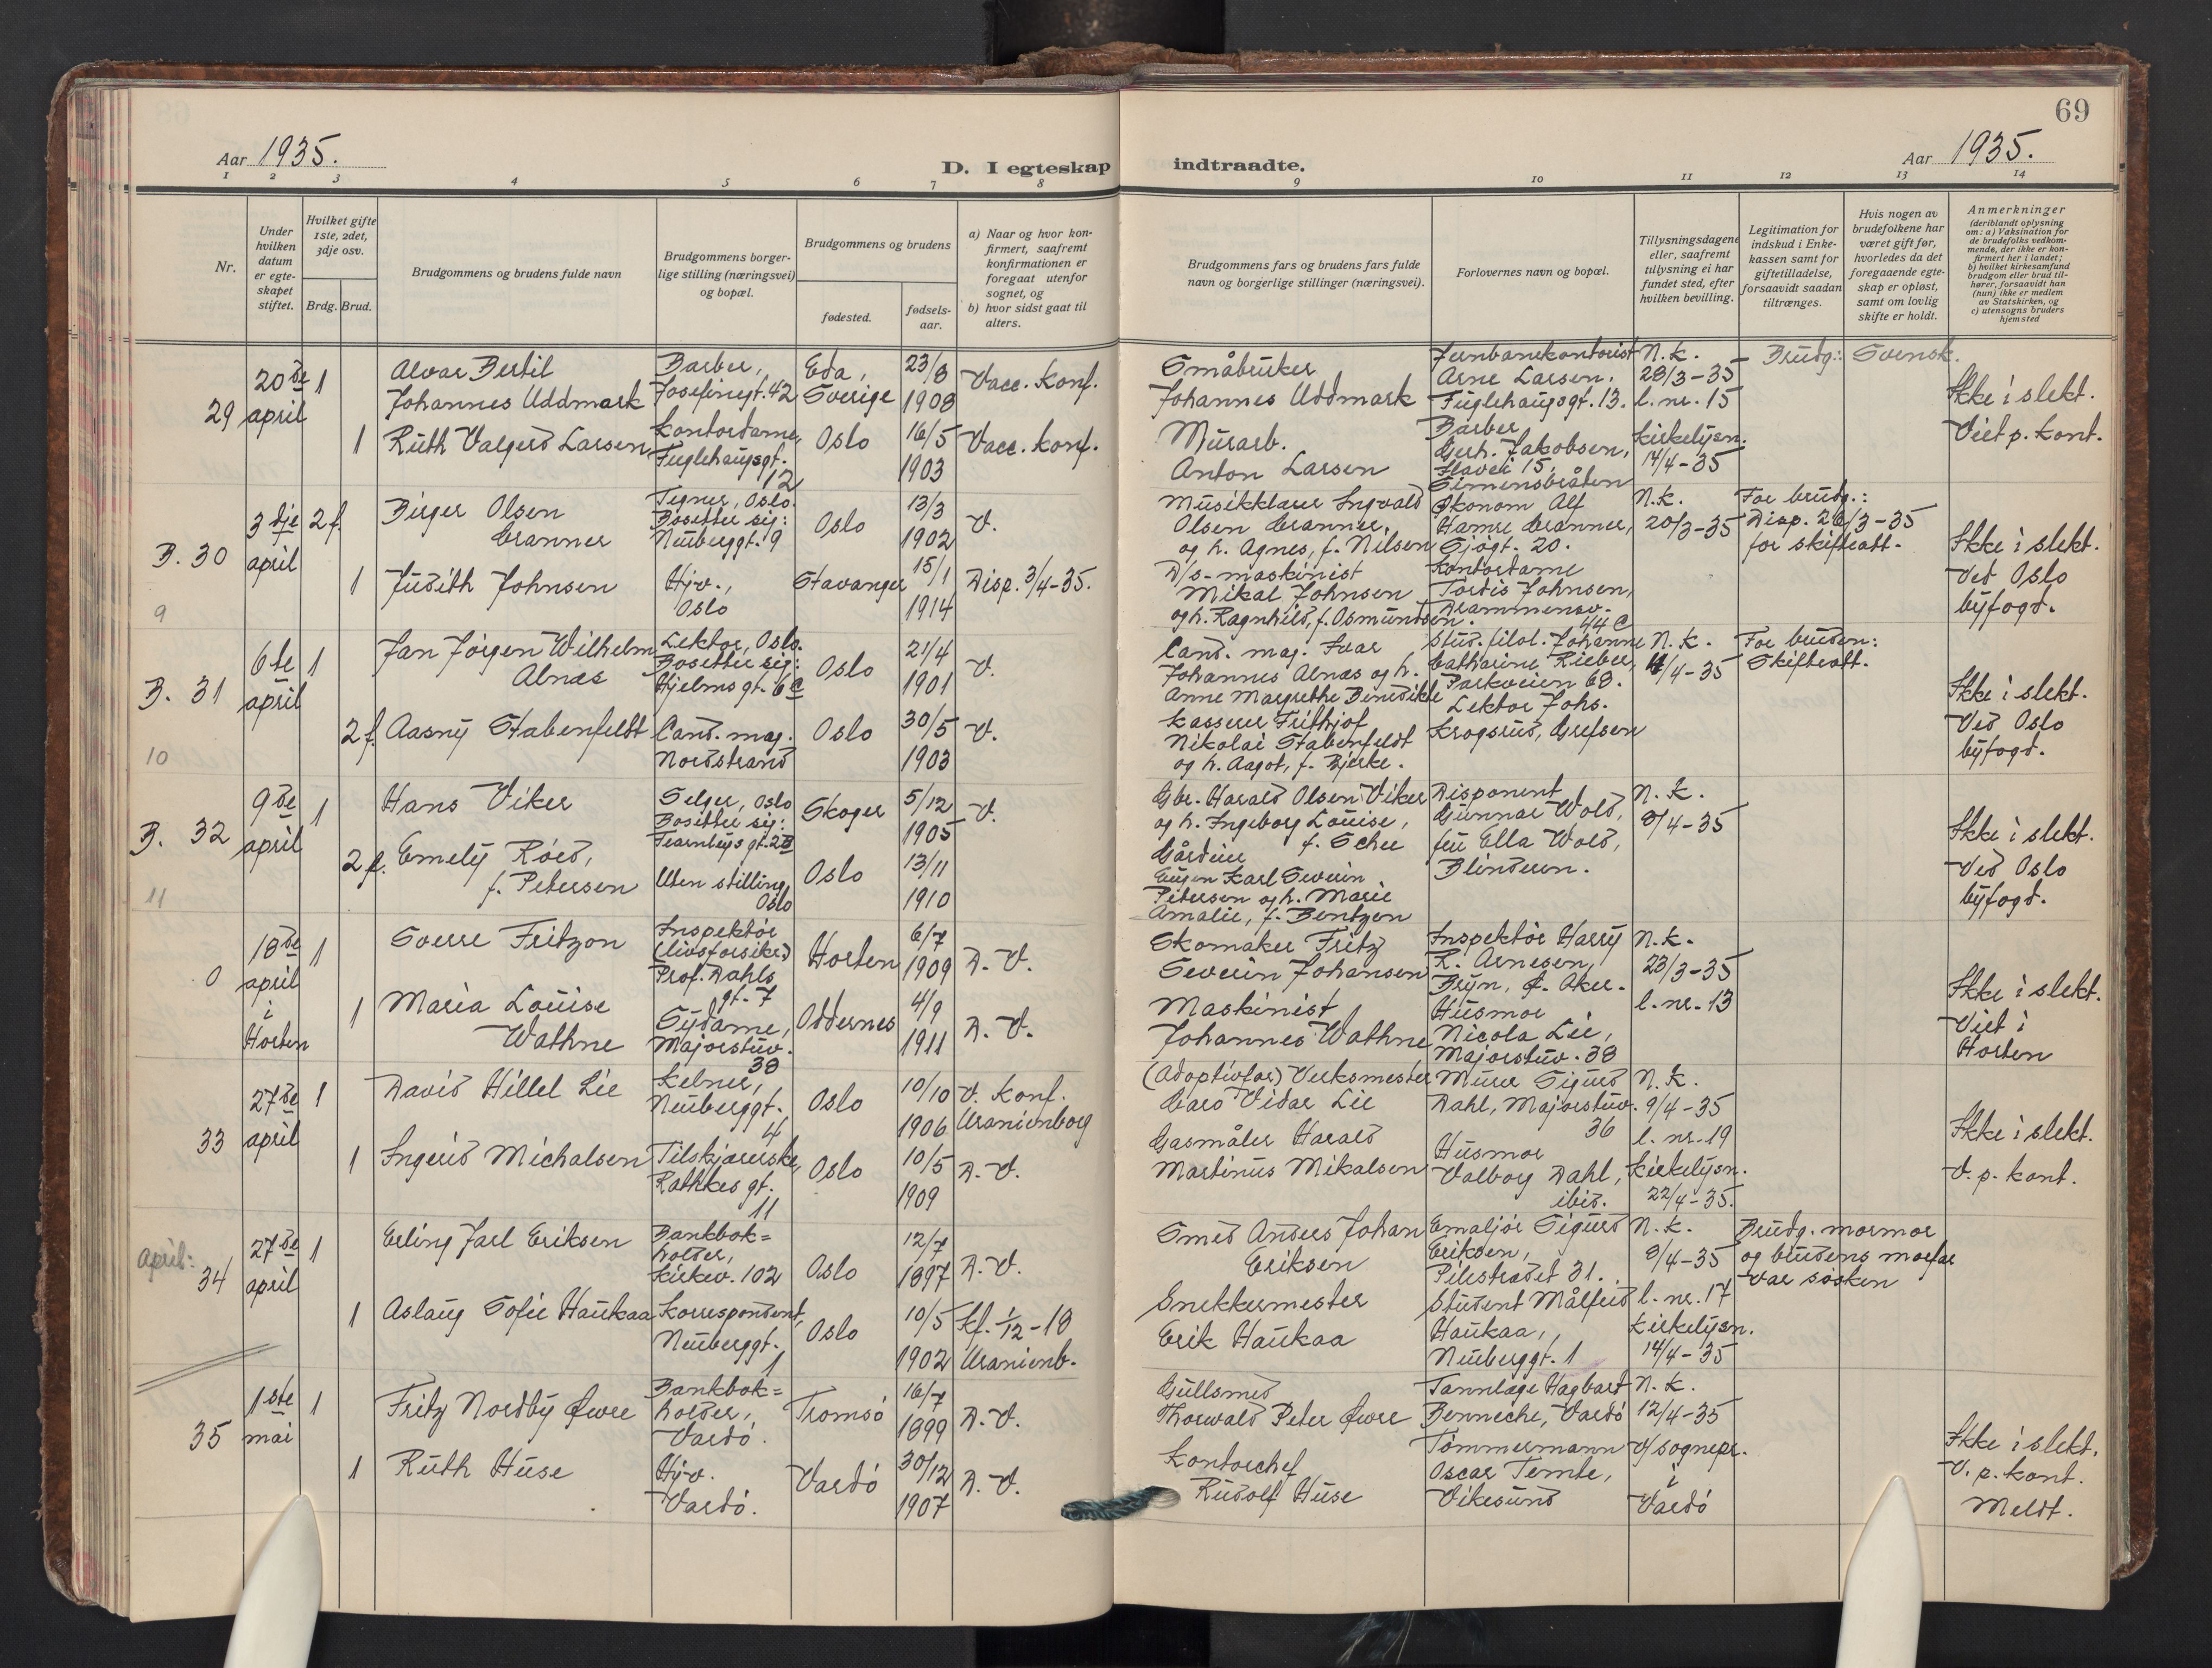 69
Aar 1935.
D. I egteskap indtraadte.
Aar 1935.
1 2 3 4 5 6 7 8 9 10 11 12 13 14
Nr.
Under hvilken datum er egteskapet stiftet.
Hvilket gifte 1ste, 2det, 3dje osv.
Brdg. Brud.
Brudgommens og brudens fulde navn
Brudgommens borgerlige stilling (næringsvei) og bopæl.
Brudgommens og brudens
fødested.
fødselsaar.
a) Naar og hvor konfirmert, saafremt konfirmationen er foregaat utenfor sognet, og
b) hvor sidst gaat til alters.
Brudgommens fars og brudens fars fulde navn og borgerlige stillinger (næringsvei).
Forlovernes navn og bopæl.
Tillysningsdagene eller, saafremt tillysning ei har fundet sted, efter hvilken bevilling.
Legitimation for indskud i Enkekassen samt for giftetilladelse, forsaavidt saadan tiltrænges.
Hvis nogen av brudefolkene har været gift før, hvorledes da det foregaaende egteskap er opløst, samt om lovlig skifte er holdt.
Anmerkninger
(deriblandt oplysning om: a) Vaksination for de brudefolks vedkommende, der ikke er konfirmert her i landet; b) hvilket kirkesamfund brudgom eller brud tilhører, forsaavidt han (hun) ikke er medlem av Statskirken, og c) utensogns bruders hjemsted
29
20de april
1
Alvar Bertil
Johannes Uddmark
Barber,
Josefinegt. 42
Eda,
Sverige
23/8
1908
Vacc. Konf.
Småbruker
Johannes Uddmark
Jernbanekontorist
Arne Larsen.
Fuglehaugsgt. 13.
N.k.
28/3-35
l. nr. 15
Brudg.: Svensk.
Ikke i slekt.
1
Ruth Valgerd Larsen
Kontordame,
Fuglehaugsgt.
12
Oslo
16/5
1903
Vacc. Konf.
Murarb.
Anton Larsen
Barber
Gerh. Jakobsen,
15,
Simensbråten
Kirkelysn.
14/4-35
Viet p. kont.
B. 30
9
3dje april
2 f.
Birger Olsen
Cranner
Tegner, Oslo.
Bosetter sig:
Neuberggt. 9
Oslo
13/3
1902
V.
Musikklærer Ingvald
Olsen Cranner.
og h. Agnes, f. Nilsen
Økonom Alf
Hamre Cranner,
Sjøgt. 20.
N.k.
20/3-35
For brudg.:
Disp. 26/3-35
for skifteatt.
Ikke i slekt.
Ved Oslo
byfogd.
1
Judith Johnsen
Hjv.,
Oslo
Stavanger
15/1
1914
Disp. 3/4-35.
D/s-maskinist
Mikal Johnsen
og h. Ragnhild, f. Osmundsen.
Kontordame
Tordis Johnsen,
Drammensv.
44 C
B. 31
10
6te april
1
Jan Jørgen Wilhelm
Alnæs
Lektor, Oslo.
Bosetter sig:
Hjelms gt. 6 C
Oslo
21/4
1901
V.
Cand. mag. Ivar
Johannes Alnæs og h.
Anne Margrethe Benedikte
Stud. filol. Johanne
Catharine Rieber,
Parkveien 68.
N.k.
4/4-35
For bruden:
Skifteatt.
Ikke i slekt.
Ved Oslo
byfogd.
2 f.
Aasny Stabenfeldt
Cand. mag.
Nordstrand
Oslo
30/5
1903
V.
Kasserer Frithjof
Nikolai Stabenfeldt
og h. Aagot, f. Bjerke.
Lektor Johs.
Krogsrud, Grefsen
B. 32
11
9de april
1
Hans Viker
Selger, Oslo
Bosetter sig:
Fearnleys gt. 2B
Skoger
5/12
1905
V.
Gbr. Harald Olsen Viker
og h. Ingeborg Louise,
f. Schee
Disponent
Gunnar Wold,
fru Ella Wold,
Blindern.
N.k.
8/4-35
Ikke i slekt.
Ved Oslo
byfogd.
2 f.
Emely Røed,
f. Petersen
Uten stilling,
Oslo
Oslo
13/11
1910
Gårdeier
Eugen Karl Severin
Petersen og h. Marie
Amalie, f. Bentzen
0
18de april
i
Horten
1
Sverre Fritzon
Inspektør
(livsforsikr.)
Prof. Dahls
gt. 7
Horten
6/7
1909
D. V.
Skomaker Fritz
Severin Johansen
Inspektør Harry
R. Arnesen,
Bryn, Ø. Aker.
N.k.
23/3-35
l. nr. 13
Ikke i slekt.
Viet i
Horten
1
Maria Louise
Wathne
Sydame,
Majorstuv.
38
Oddernes
4/9
1911
D. V.
Maskinist
Johannes Wathne
Husmor
Nicola Lie,
Majorstuv. 38
33
27de april
1
David Hillel Lie
Kelner,
Neuberggt.
4
Oslo
10/10
1906
V. Konf.
Uranienborg
(Adoptivfar) Verksmester
Caro Vidar Lie
Murer Sigurd
Dahl, Majorstuv.
36
N.k.
9/4-35
l. nr. 19
Ikke i slekt.
V. p. kont.
1
Ingerid Michalsen
Tilskjærerske,
Rathkes gt.
11
Oslo
10/5
1909
D. V.
Gasmåler Harald
Martinus Mikalsen
Husmor
Valborg Dahl,
ibid.
Kirkelysn.
22/4-35.
April:
34
27de april
1
Erling Jarl Eriksen
Bankbok=
holder,
Kirkev. 102
Oslo
12/7
1897
D. V.
Smed Anders Johan
Eriksen
Emaljør Sigurd
Eriksen,
Pilestrædet 31.
N.k.
8/4-35
l. nr. 17
Brudg. mormor
og brudens morfar
var søsken
1
Aslaug Sofie Haukaa
Korrespondent,
Neuberggt.
1
Oslo
10/5
1902
Kf. 1/12-18
Uranienb.
Snekkermester
Erik Haukaa
Student Målfrid
Haukaa,
Neuberggt. 1
Kirkelysn.
14/4-35
35
1ste mai
1
Fritz Nordby Øwre
Bankbok=
holder,
Vardø.
Tromsø
16/7
1899
D. V.
Gullsmed
Thorwald Peter Øwre
Tannlæge Hagbart
Benneche, Vardø
N.k.
12/4-35
v/ sognepr.
i
Vardø
Ikke i slekt.
V. p. kont.
Meldt.
1
Ruth Huse
Hjv.
Vardø.
Vardø
30/12
1907
D. V.
Kontorchef
Rudolf Huse
Tømmermann
Oscar Temte,
Vikesund